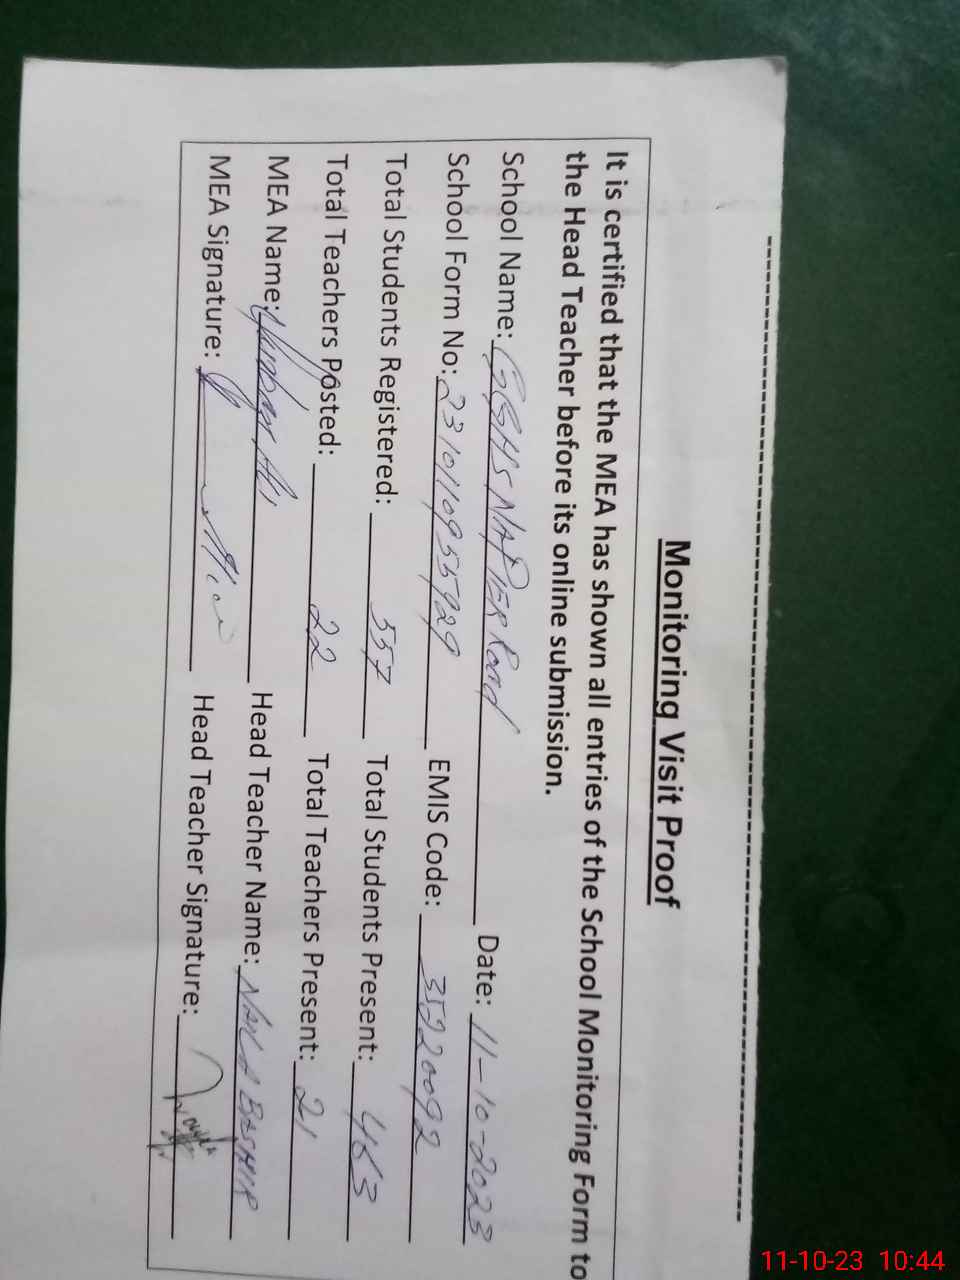 Monitoring Visit Proof
It is certified that the MEA has shown all entries of the School Monitoring Form to
the Head Teacher before its online submission.
School Name: GGHS NAPIER Road Date: 11-10-2023
School Form No: 23101109 55929 EMIS Code: 35220092
Total Students Registered: 557 Total Students Present: 463
Total Teachers Posted: 22 Total Teachers Present: 21
MEA Name: Ali Head Teacher Name: NAILA BASHIR
MEA Signature: Head Teacher Signature:
11-10-23 10:44